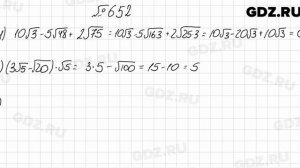 GDZ.RU
№652
) 10√3 - 5√48 + 2√75 = 10√3 - 5√16·3 + 2√25·3 = 10√3 - 20√3 + 10√3 = 0
) (3√5 - √20)·√5 = 3·5 - √100 = 15 - 10 = 5
)